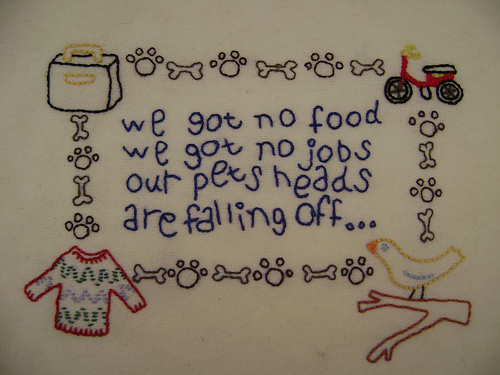 we got no food
we got no jobs
our pets heads
are falling off...